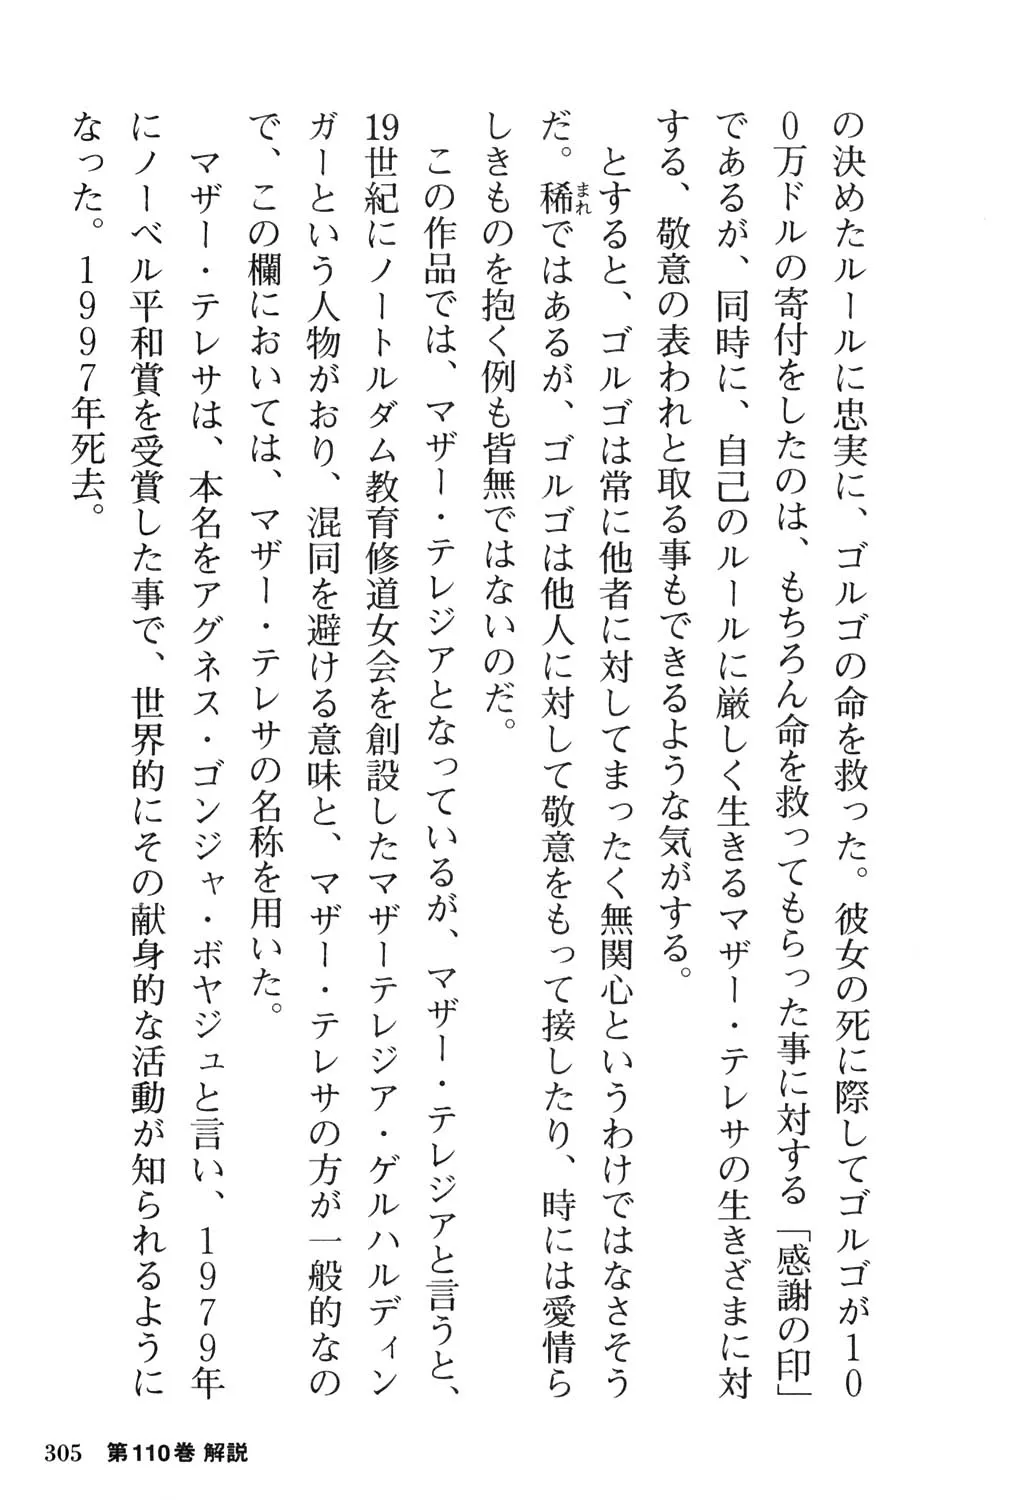 の決めたルールに忠実に、ゴルゴの命を救った。彼女の死に際してゴルゴが１０
０万ドルの寄付をしたのは、もちろん命を救ってもらった事に対する「感謝の印」
であるが、同時に、自己のルールに厳しく生きるマザー・テレサの生きざまに対
する、敬意の表われと取る事もできるような気がする。
とすると、ゴルゴは常に他者に対してまったく無関心というわけではなさそう
だ。稀まれではあるが、ゴルゴは他人に対して敬意をもって接したり、時には愛情ら
しきものを抱く例も皆無ではないのだ。
この作品では、マザー・テレジアとなっているが、マザー・テレジアと言うと、
19世紀にノートルダム教育修道女会を創設したマザーテレジア・ゲルハルディン
ガーという人物がおり、混同を避ける意味と、マザー・テレサの方が一般的なの
で、この欄においては、マザー・テレサの名称を用いた。
マザー・テレサは、本名をアグネス・ゴンジャ・ボヤジュと言い、１９７９年
にノーベル平和賞を受賞した事で、世界的にその献身的な活動が知られるように
なった。１９９７年死去。
305 第110巻 解説